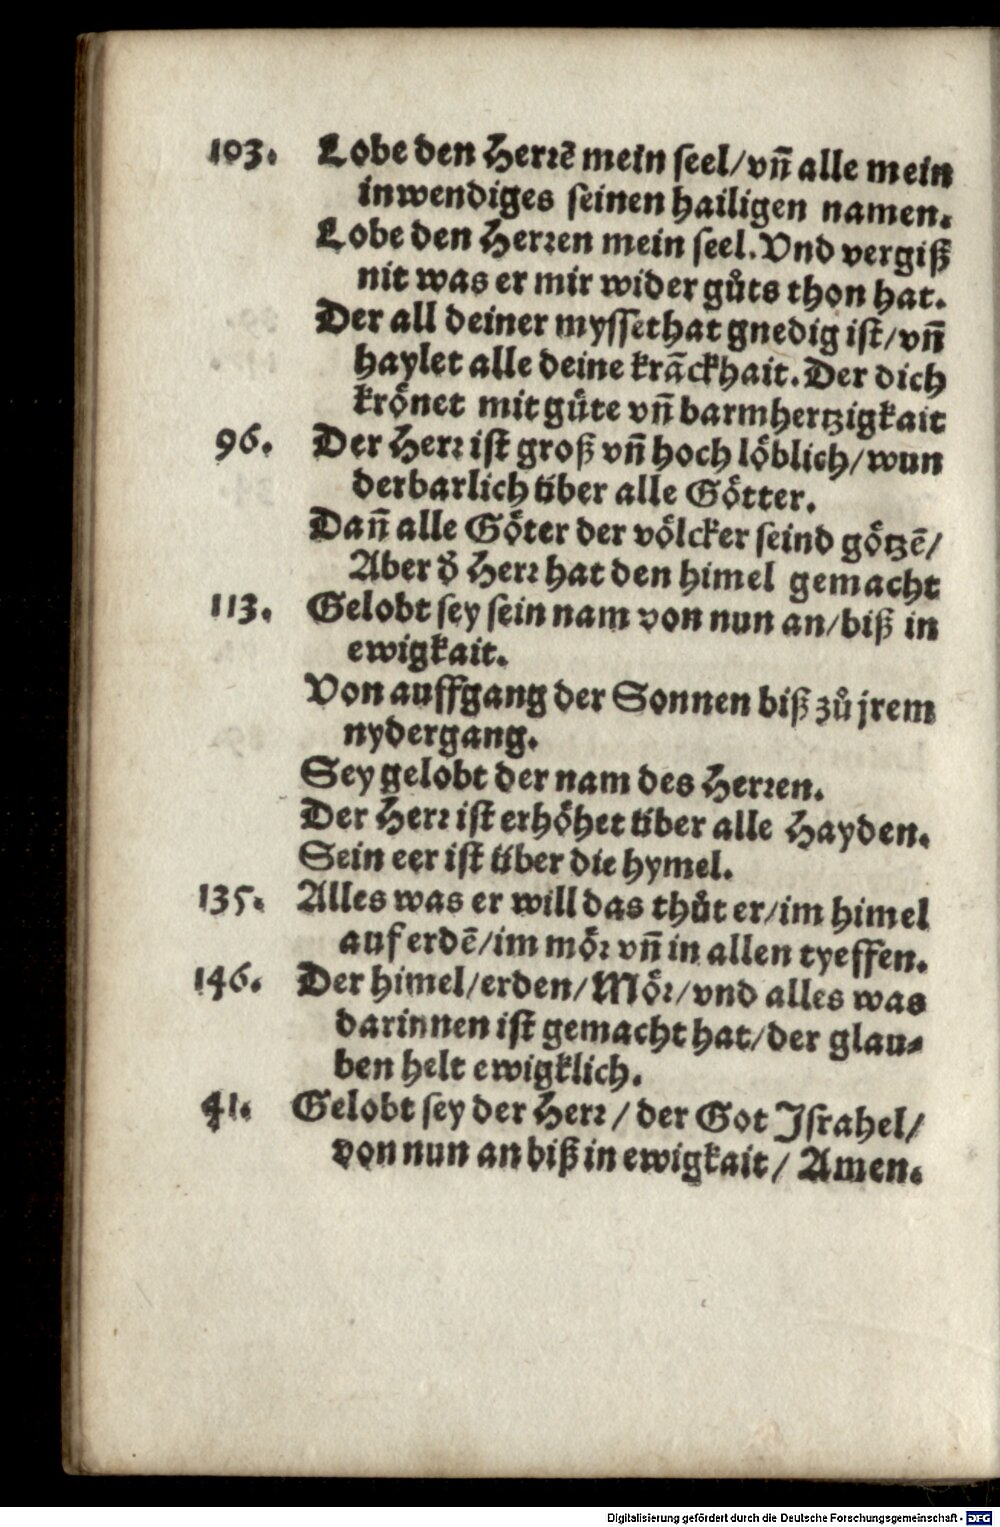 103. Lobe den Herrẽ mein seel/vñ alle mein
inwendiges seinen hailigen namen.
Lobe den Herren mein seel. Vnd vergiß
nit was er mir wider gůts thon hat.
Der all deiner myssethat gnedig ist/vñ
haylet alle deine krãckhait. Der dich
krönet mit güte vñ barmhertzigkait
96. Der Herr ist groß vñ hoch löblich/wun
derbarlich über alle Götter.
Dañ alle Göter der völcker seind götzẽ/
Aber d̕ Herr hat den himel gemacht
113. Gelobt sey sein nam von nun an/biß in
ewigkait.
Von auffgang der Sonnen biß zů jrem
nydergang.
Sey gelobt der nam des Herren.
Der Herr ist erhöhet über alle Hayden.
Sein eer ist über die hymel.
135. Alles was er will das thůt er/im himel
auf erdẽ/im mör vñ in allen tyeffen.
146. Der himel/erden/Mör/vnd alles was
darinnen ist gemacht hat/der glau⸗
ben helt ewigklich.
41. Gelobt sey der Herr/der Got Jsrahel/
von nun an biß in ewigkait/Amen.
Digitalisierung gefördert durch die Deutsche Forschungsgemeinschaft - DFG